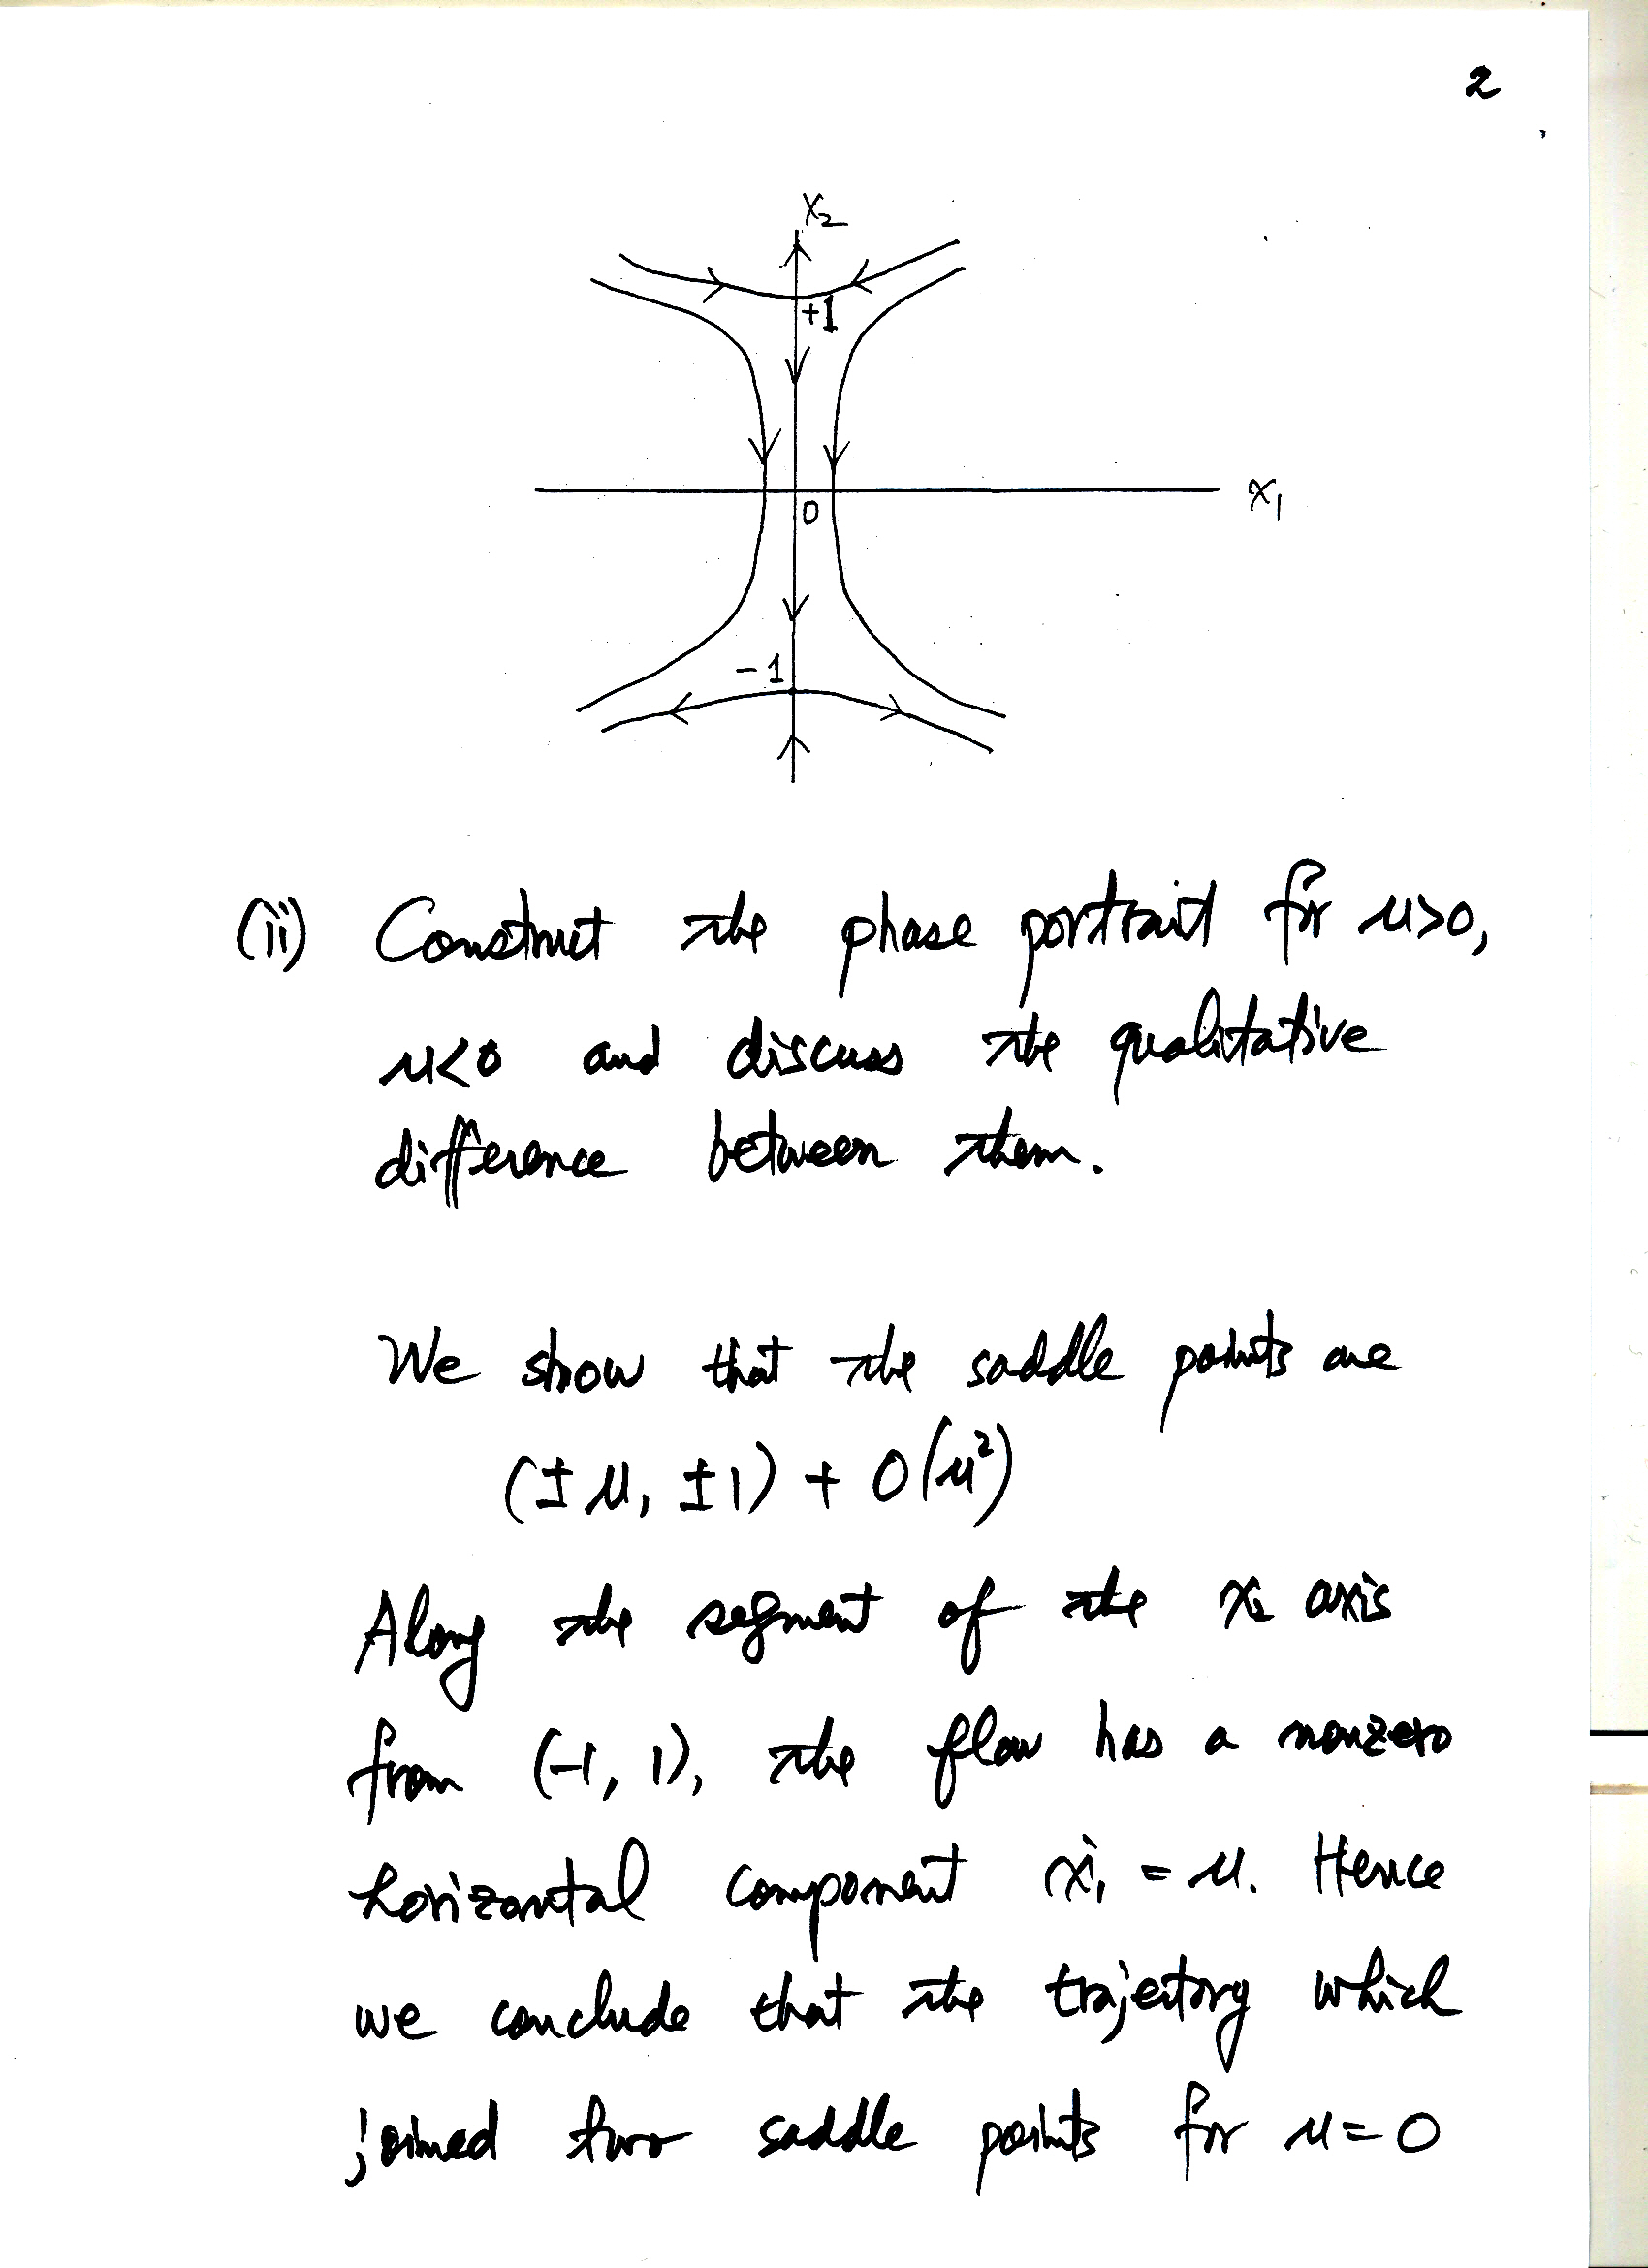 2
x₂
+1
x₁
0
-1
(ii) Construct the phase portrait for μ>0,
μ<0 and discuss the qualitative
difference between them.
We show that the saddle points are
(±μ, ±1) + O(μ²)
Along the segment of the x₂ axis
from (-1, 1), the flow has a nonzero
horizontal component ẋ₁ = μ. Hence
we conclude that the trajectory which
joined two saddle points for μ=0